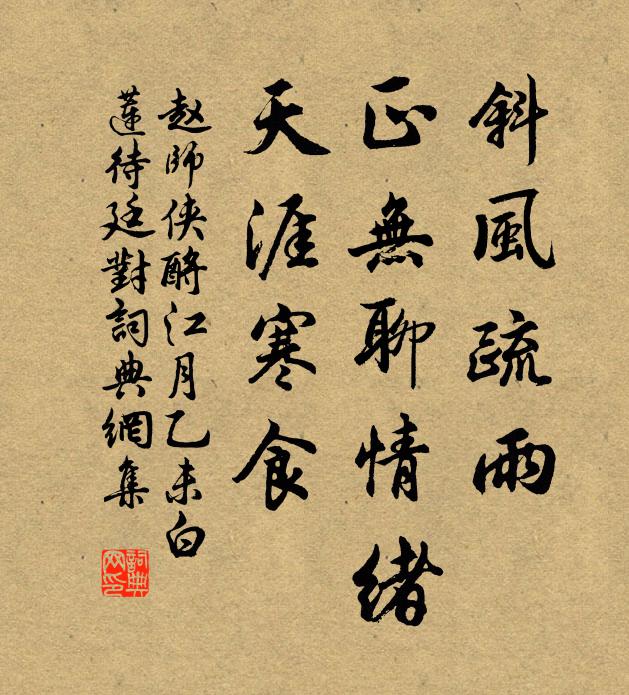 斜風疏雨
正無聊情緒
天涯寒食
赵師俠酹江月乙未白
蓮待廷對詞典網集
詞典网印